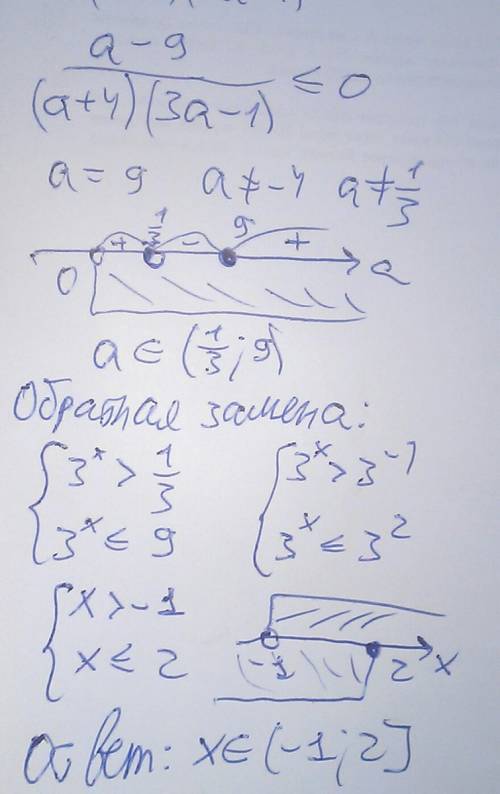 a - 9
(a+4)(3a-1) ≤ 0
a = 9 a ≠ -4 a ≠ 1/3
0 + 1/3 - 9 + a
a ∈ (1/3; 9)
Обратная замена:
{ 3^x > 1/3 { 3^x > 3^-1
{ 3^x ≤ 9 { 3^x ≤ 3^2
{ x > -1
{ x ≤ 2 -1 2 x
Ответ: x ∈ (-1; 2]